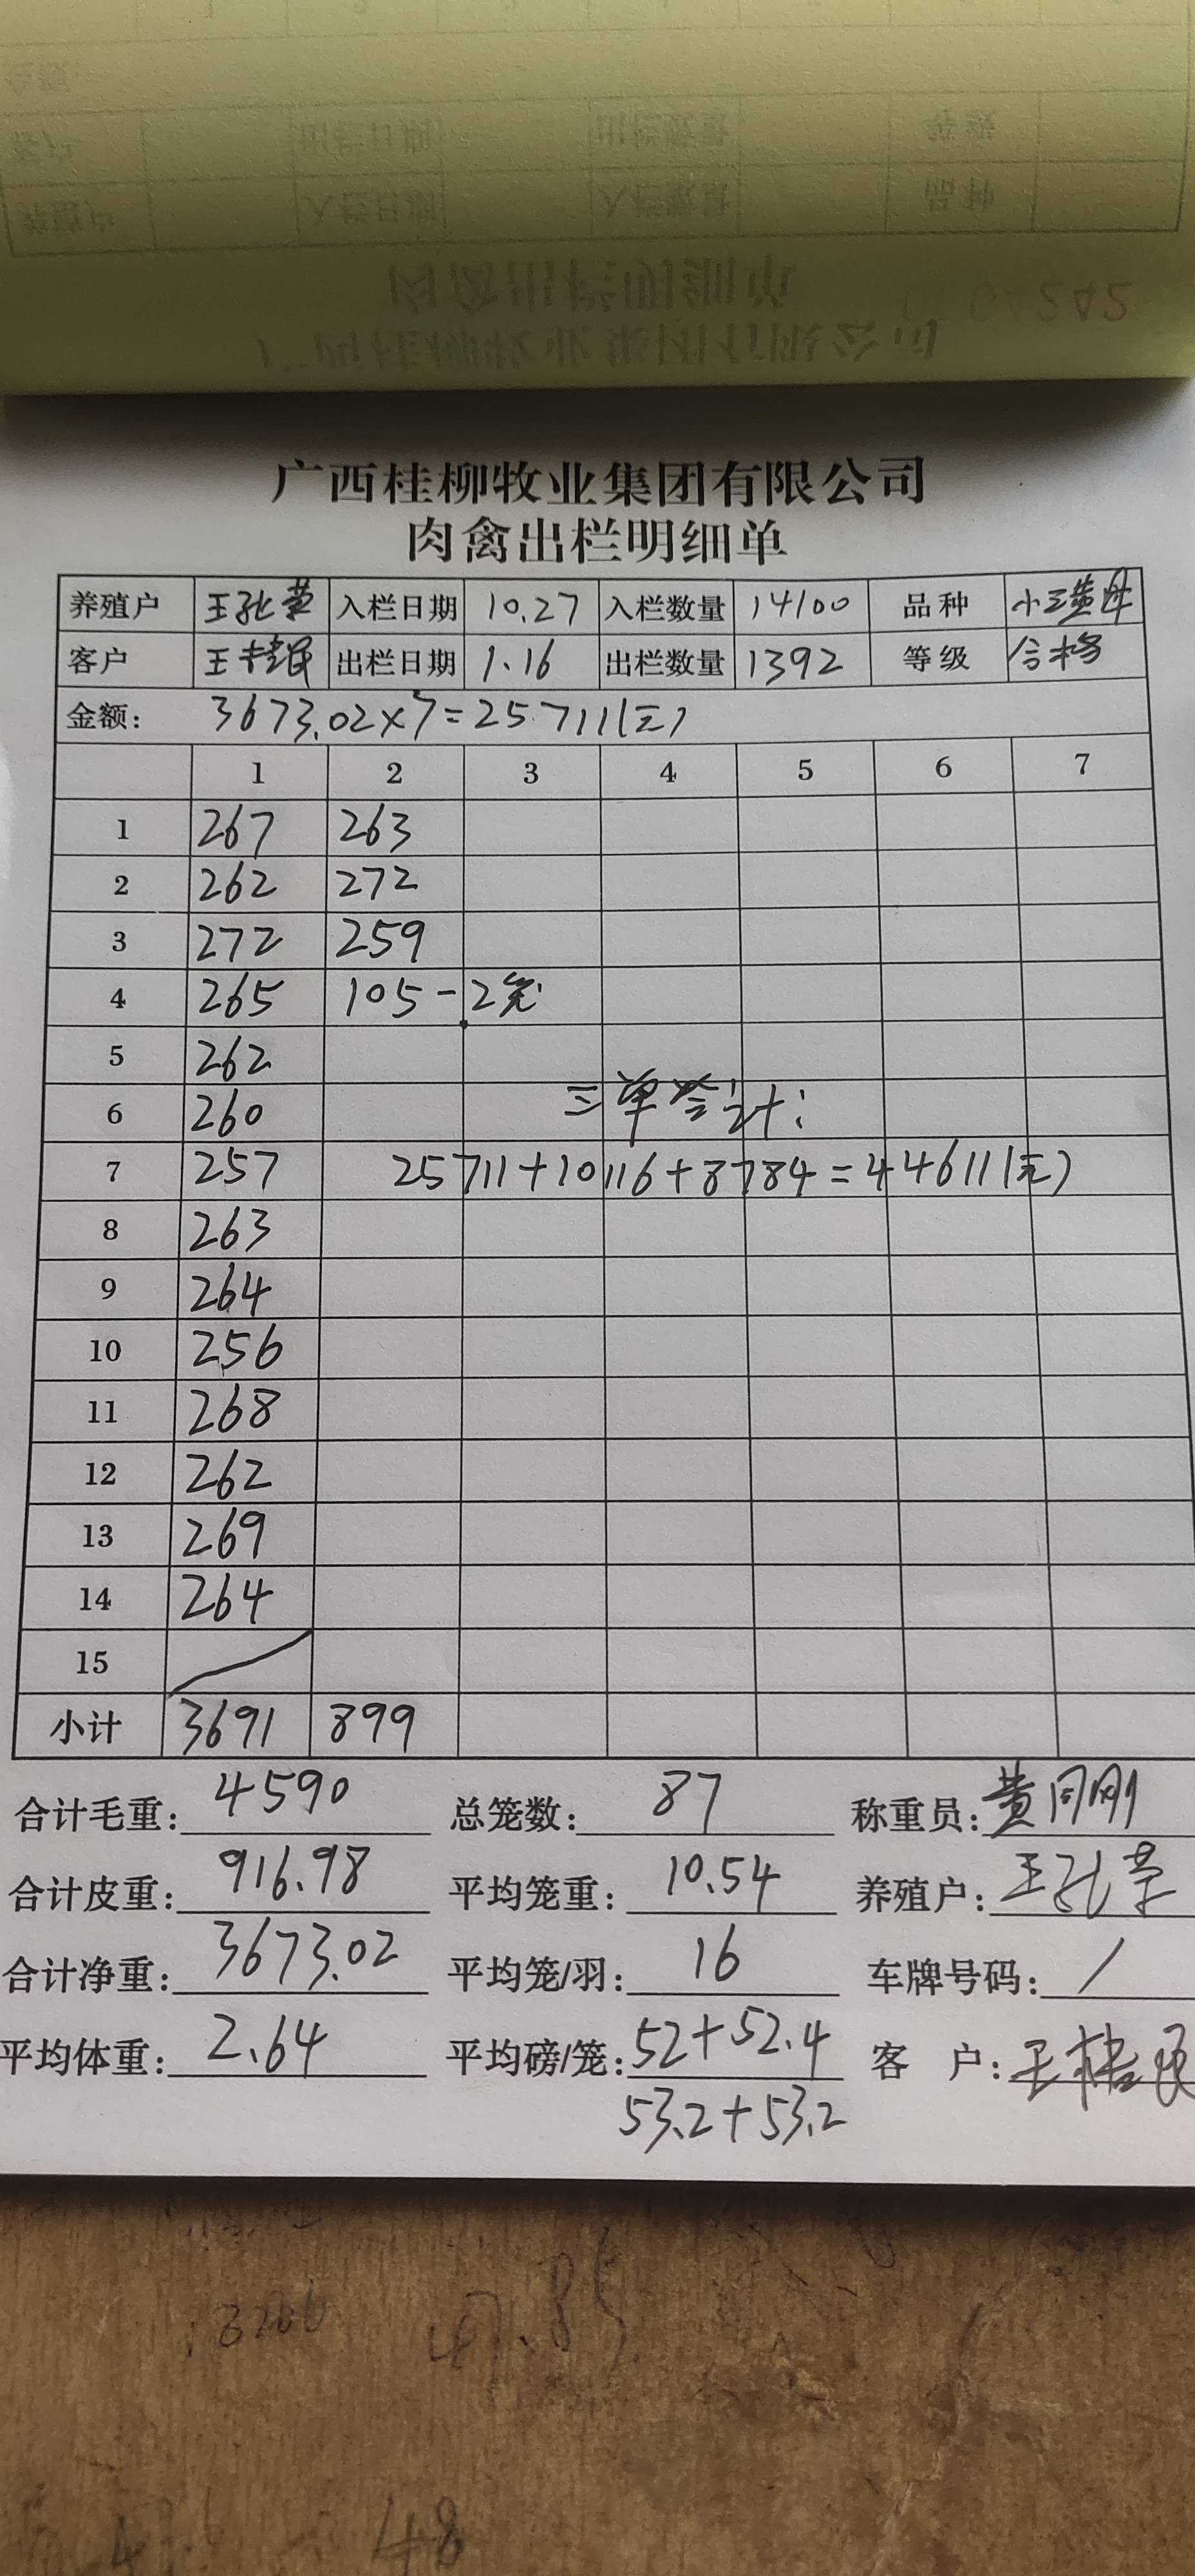 广西桂柳牧业集团有限公司
肉禽出栏明细单
养殖户 王孔荣 入栏日期 10.27 入栏数量 14100 品种 小三黄母
客户 出栏日期 1.16 出栏数量 1392 等级 合格
金额: 3673.02×7=25711(元)
1 2 3 4 5 6 7
1 267 263
2 262 272
3 272 259
4 265 105-2笼
5 262
6 260 三单合计:
7 257 25711+10116+8784=44611(元)
8 263
9 264
10 256
11 268
12 262
13 269
14 264
15
小计 3691 899
合计毛重: 4590 总笼数: 87 称重员: 黄同刚
合计皮重: 916.98 平均笼重: 10.54 养殖户: 王孔荣
合计净重: 3673.02 平均笼/羽: 16 车牌号码: /
平均体重: 2.64 平均磅/笼: 52+52.4 客 户:
53.2+53.2